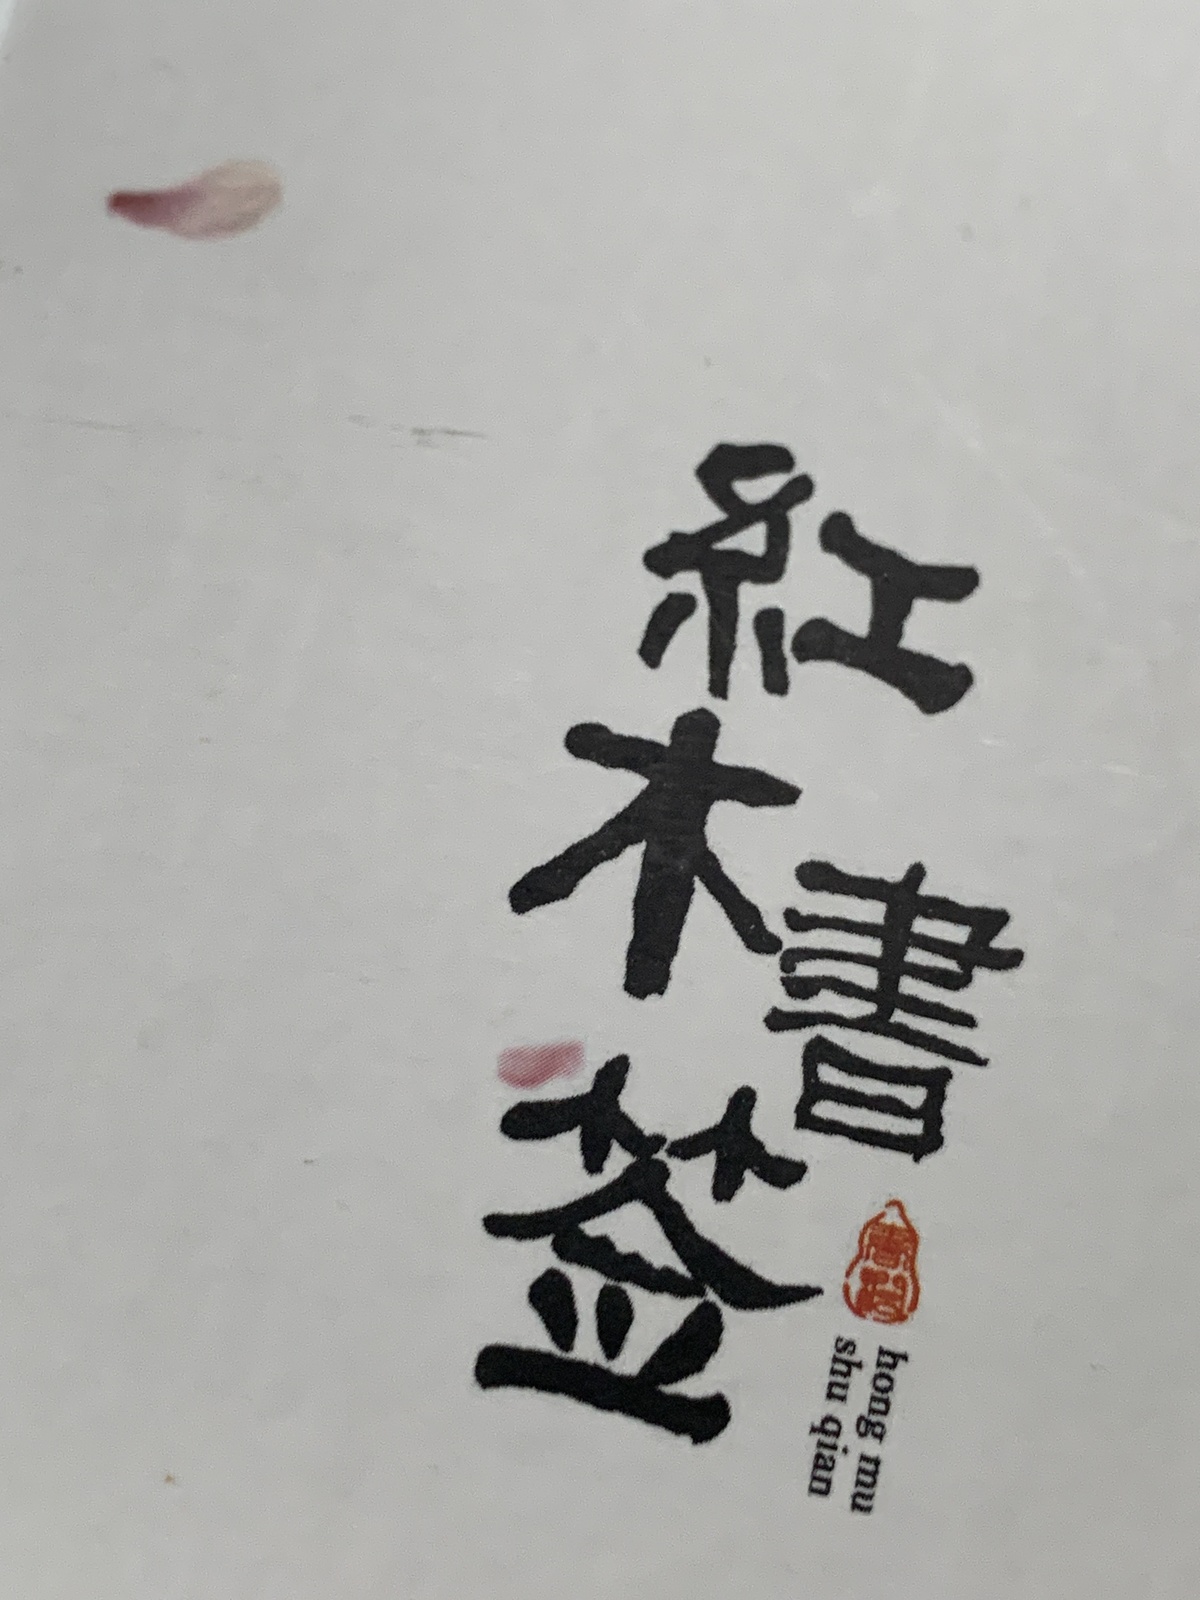 紅木
書签
hong mu
shu qian